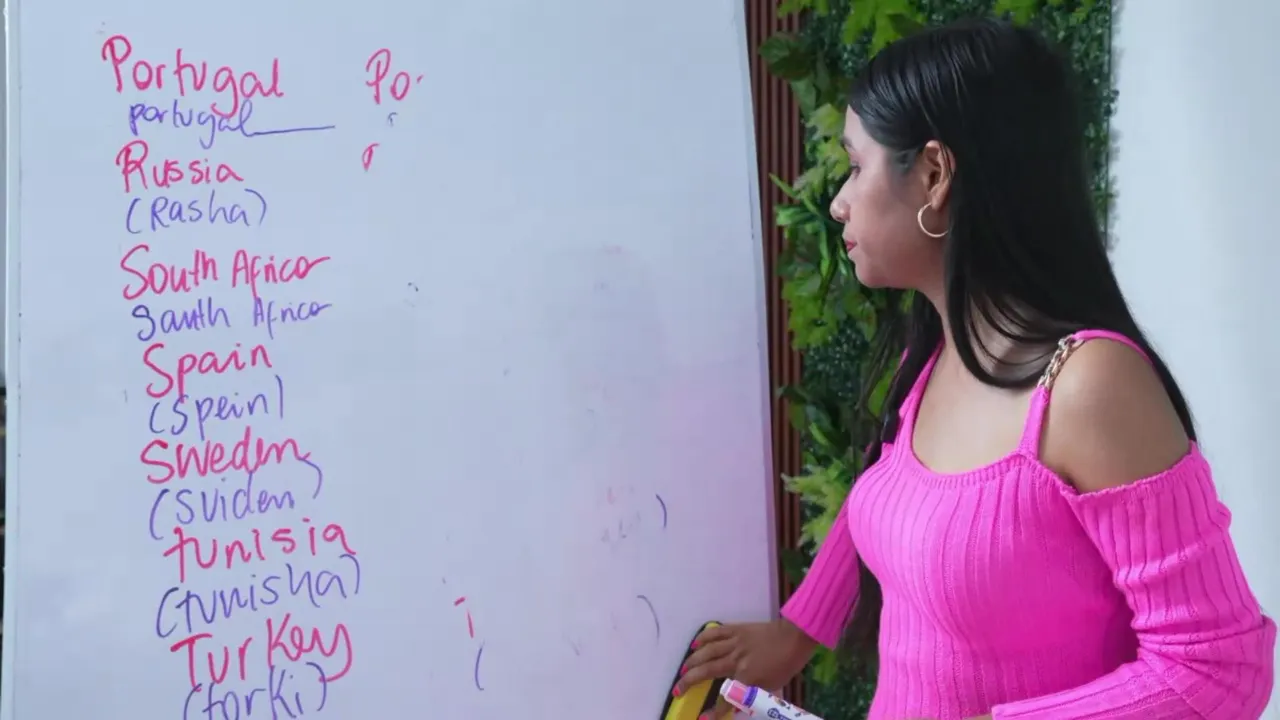 Portugal Po
portugal
Russia r
(Rasha)
South Africa
Sauth Africa
Spain
(Spein)
Sweden
(Sviden)
tunisia
(tunisha)
Turkey
(torki)